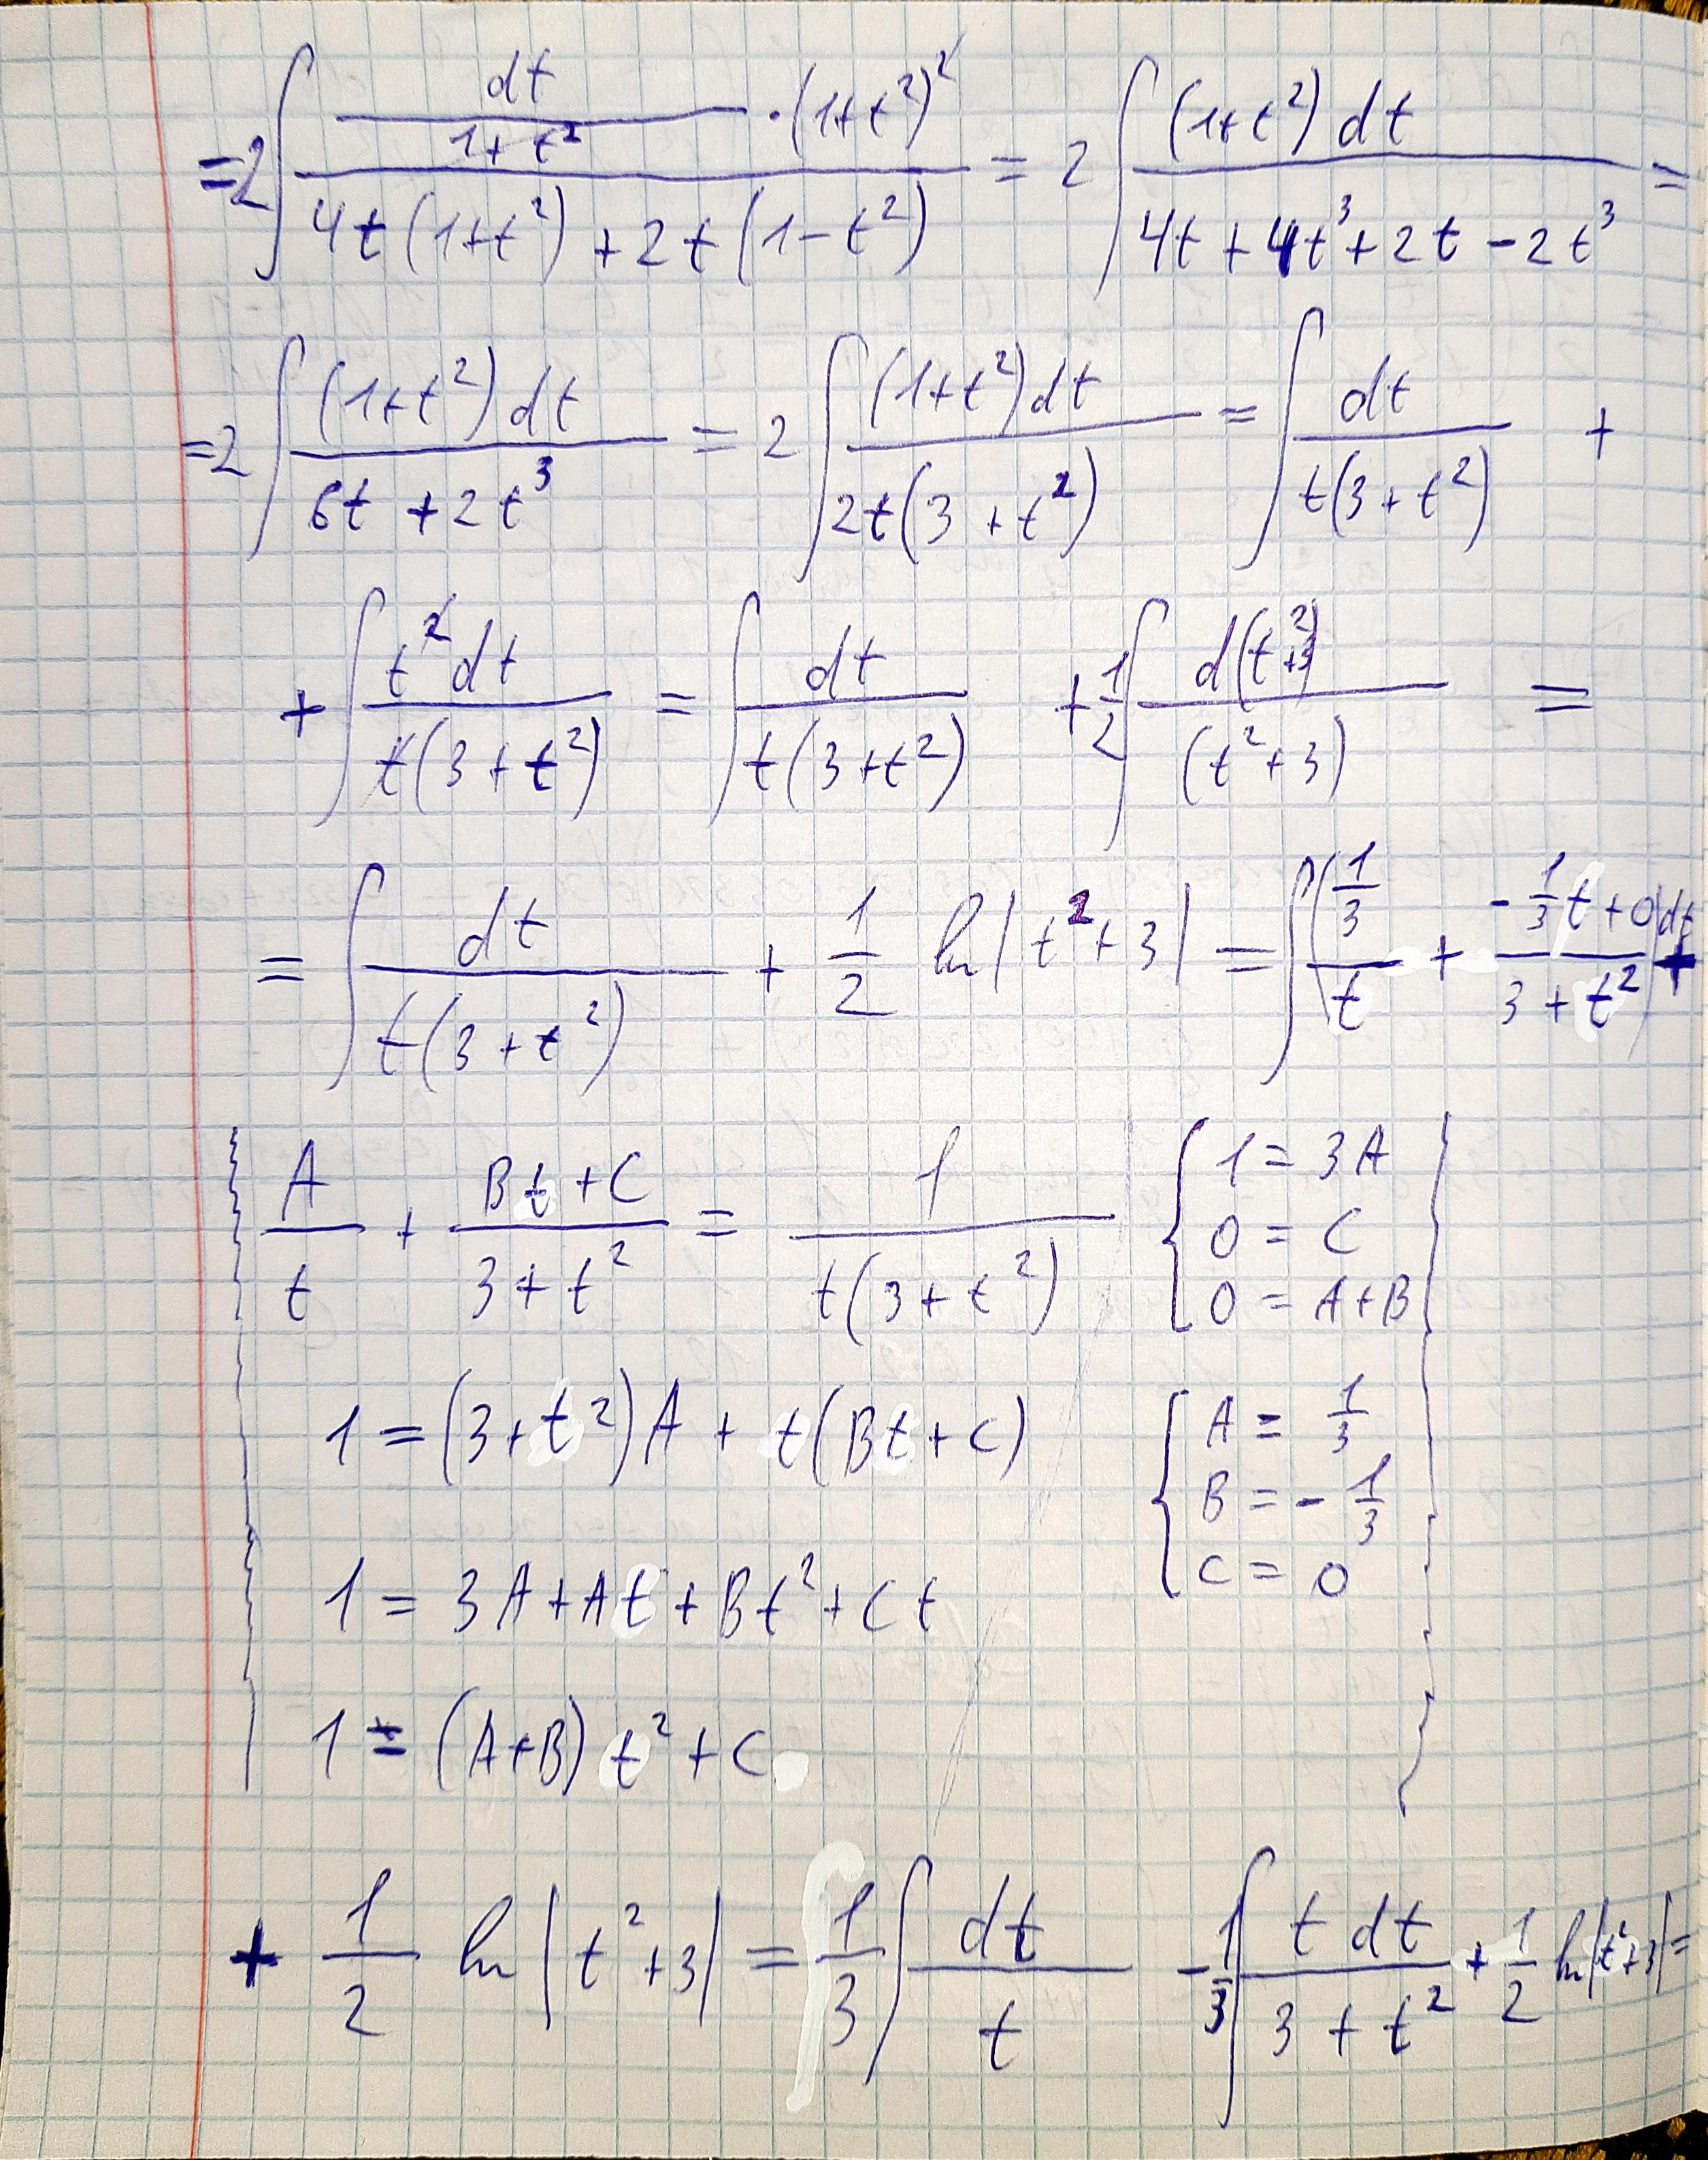 =2∫ (dt/(1+t²) · (1+t²)²)/(4t(1+t²)+2t(1-t²)) = 2∫ ((1+t²) dt)/(4t+4t³+2t-2t³) =
=2∫ ((1+t²) dt)/(6t+2t³) = 2∫ ((1+t²)dt)/(2t(3+t²)) = ∫ dt/(t(3+t²)) +
+ ∫ (t² dt)/(t(3+t²)) = ∫ dt/(t(3+t²)) + 1/2 ∫ d(t²+3)/(t²+3) =
= ∫ dt/(t(3+t²)) + 1/2 ln|t²+3| = ∫((1/3)/t + (-1/3 t+0)/(3+t²))dt +
A/t + (Bt+C)/(3+t²) = 1/(t(3+t²)) { 1=3A
0=C
0=A+B
1=(3+t²)A + t(Bt+C) { A=1/3
B=-1/3
C=0
1=3A+At+Bt²+Ct
1=(A+B)t²+C
+ 1/2 ln|t²+3| = 1/3 ∫ dt/t - 1/3 ∫ (t dt)/(3+t²) + 1/2 ln|t²+3| =